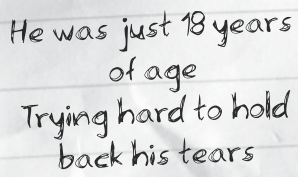 He was just 18 years
of age
Trying hard to hold
back his tears